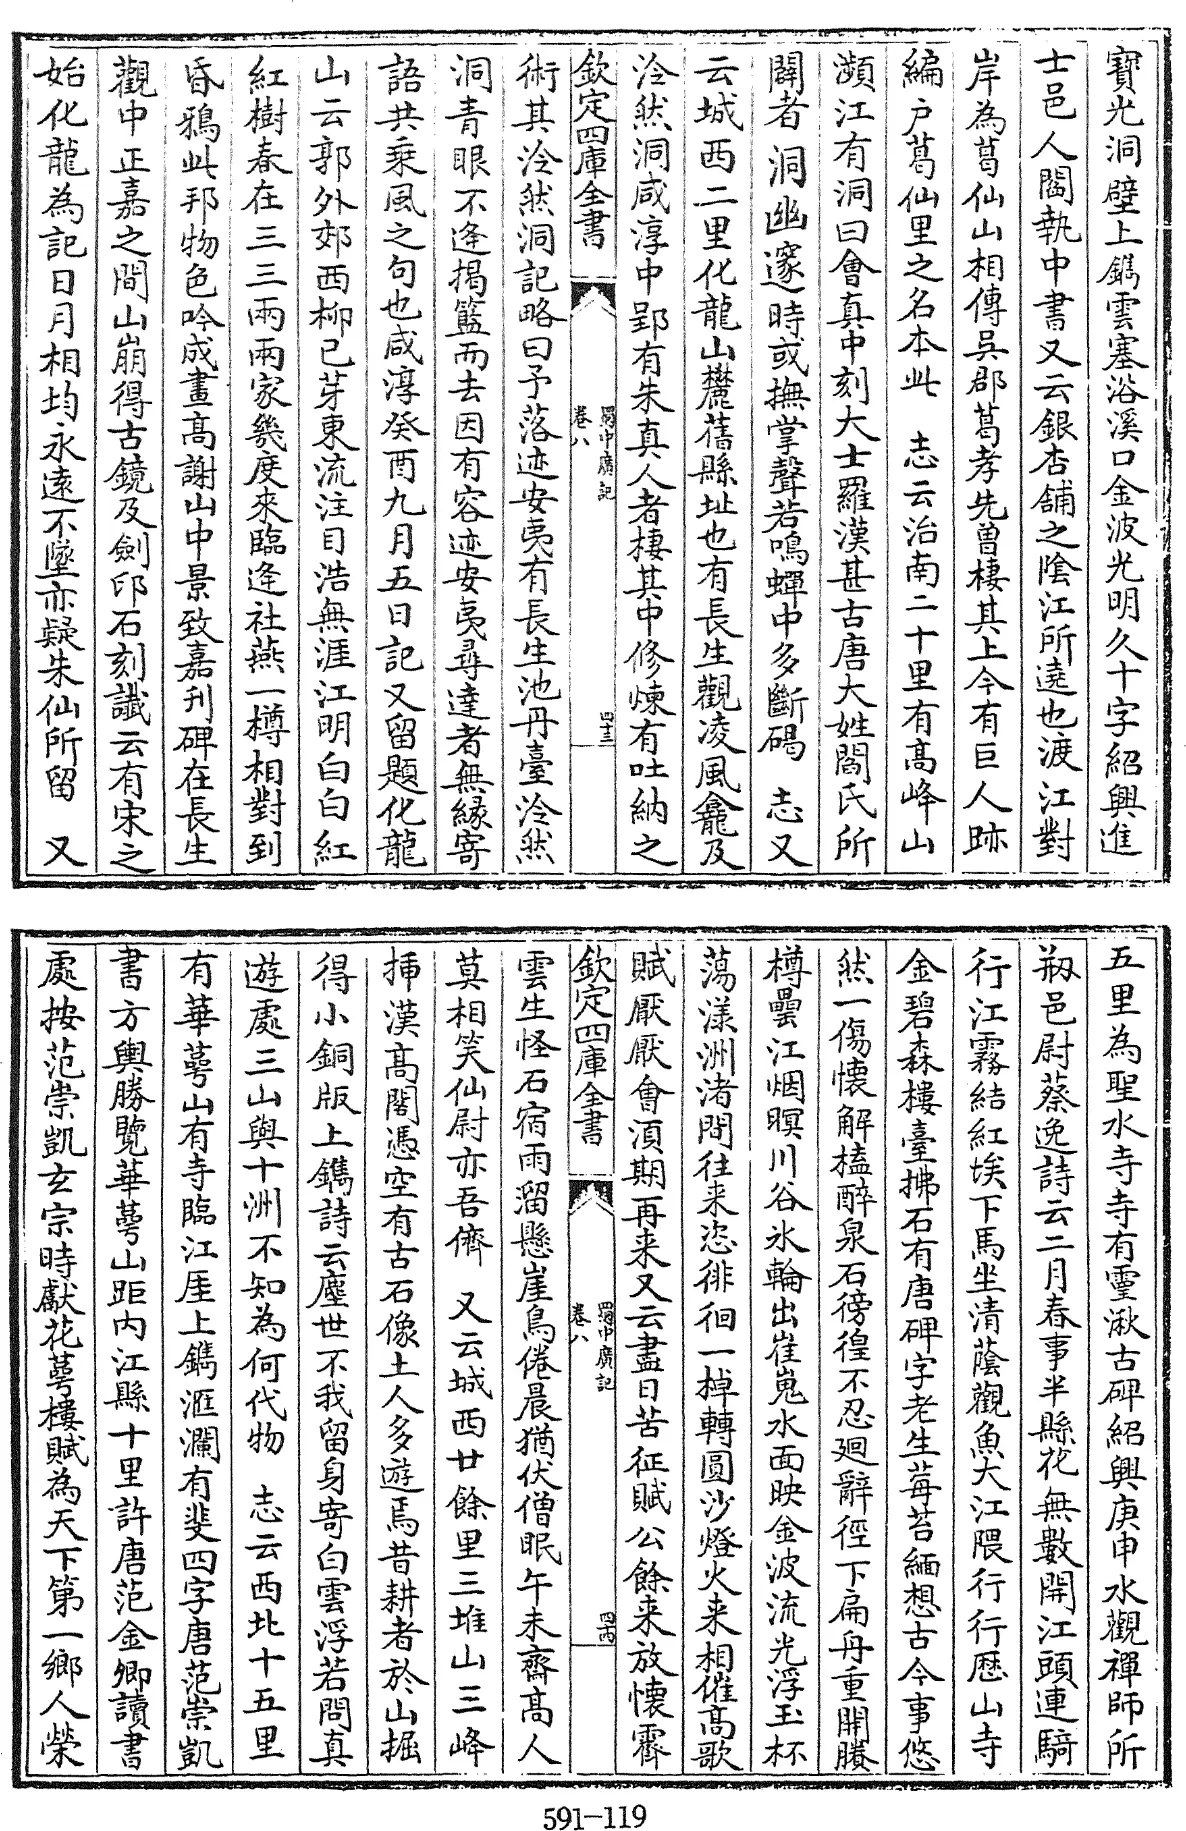 寶光洞壁上鐫雲塞浴溪口金波光明久十字紹興進
士邑人閻執中書又云銀杏舖之隂江所遶也渡江對
岸為葛仙山相傳吳郡葛孝先曽棲其上今有巨人跡
編户葛仙里之名本此　志云治南二十里有髙峰山
瀕江有洞曰會真中刻大士羅漢甚古唐大姓閻氏所
闢者洞幽邃時或撫掌聲若鳴蟬中多斷碣　志又
云城西二里化龍山麓舊縣址也有長生觀凌風龕及
泠然洞咸淳中郢有朱真人者棲其中修煉有吐納之
欽定四庫全書
蜀中廣記
卷八
四三
術其泠然洞記略曰予落迹安夷有長生池丹臺泠然
洞青眼不逢揭籃而去因有容迹安夷尋達者無縁寄
語共乘風之句也咸淳癸酉九月五日記又留題化龍
山云郭外郊西柳已芽東流注目浩無涯江明白白紅
紅樹春在三三兩兩家幾度來臨逢社燕一樽相對到
昏鴉此邦物色吟成畫髙謝山中景致嘉刋碑在長生
觀中正嘉之間山崩得古鏡及劍印石刻讖云有宋之
始化龍為記日月相均永逺不墜亦疑朱仙所留　又
五里為聖水寺寺有靈湫古碑紹興庚申水觀禪師所
剏邑尉蔡逸詩云二月春事半縣花無數開江頭連騎
行江霧結紅埃下馬坐清蔭觀魚大江隈行行歴山寺
金碧森樓臺拂石有唐碑字老生莓苔緬想古今事悠
然一傷懷解榼醉泉石徬徨不忍廻辭徑下扁舟重開賸
樽罍江烟暝川谷氷輪出崔嵬水面映金波流光浮玉杯
蕩漾洲渚間往来恣徘徊一棹轉圓沙燈火来相催髙歌
賦厭厭會湏期再来又云盡日苦征賦公餘来放懷霽
欽定四庫全書
蜀中廣記
卷八
四四
雲生怪石宿雨溜懸崖鳥倦晨猶伏僧眠午未齋髙人
莫相笑仙尉亦吾儕　又云城西廿餘里三堆山三峰
揷漢髙閣憑空有古石像土人多遊焉昔耕者於山掘
得小銅版上鐫詩云塵世不我留身寄白雲浮若問真
遊處三山與十洲不知為何代物　志云西北十五里
有華萼山有寺臨江厓上鐫滙瀾有斐四字唐范崇凱
書方輿勝覽華萼山距内江縣十里許唐范金卿讀書
處按范崇凱玄宗時獻花萼樓賦為天下第一鄉人榮
591-119